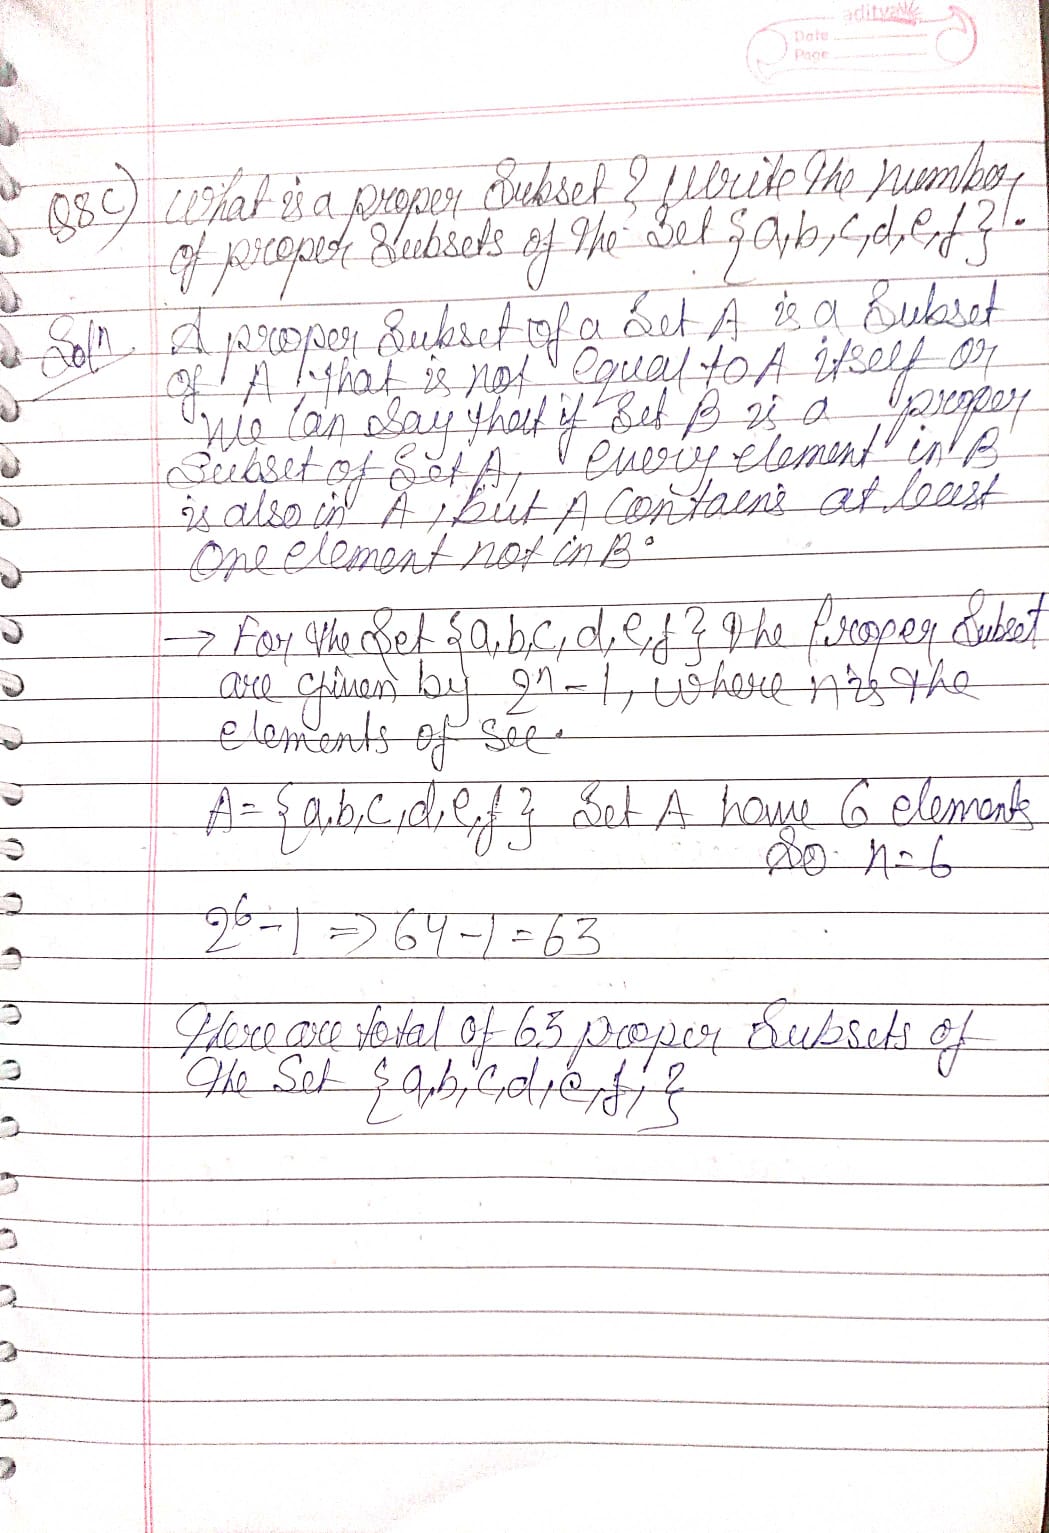 aditya
Date
Page
Q8C) What is a proper Subset? Write the number
of proper Subsets of the Set {a,b,c,d,e,f}.
Soln A proper Subset of a Set A is a Subset
of A that is not equal to A itself or
We Can Say that if Set B is a proper
Subset of Set A, every element in B
is also in A, but A Contains at least
One element not in B.
→ For the Set {a,b,c,d,e,f} the Proper Subset
are given by 2ⁿ-1, where n is the
elements of see.
A={a,b,c,d,e,f} Set A have 6 elements
So n=6
2⁶-1 => 64-1=63
There are total of 63 proper Subsets of
the Set {a,b,c,d,e,f,}